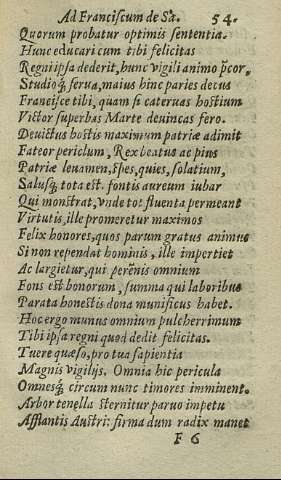 Ad Franciscum de Sá. 54.
Quorum probatur optimis sententia.
Hunc educari cum tibi felicitas
Regni ipsa dederit, hunc vigili animo p̃cor,
Studioq́; ferua, maius hinc paries decus
Francisce tibi, quam si cateruas hostium
Victor superbas Marte deuincas fero.
Deuictus hostis maximum patriæ adimit
Fateor periclum, Rex beatus ac pius
Patriæ leuamen, spes, quies, solatium,
Salusq́; tota est. fontis aureum iubar
Qui monstrat, vnde tot fluenta permeant
Virtutis, ille promeretur maximos
Felix honores, quos parum gratus animus
Si non rependat hominis, ille impertiet
Ac largietur, qui perẽnis omnium
Fons est honorum, summa qui laboribus
Parata honestis dona munificus habet.
Hoc ergo munus omnium pulcherrimum
Tibi ipsa regni quod dedit felicitas.
Tuere quæso, pro tua sapientia
Magnis vigilijs. Omnia hic pericula
Omnesq́; circum nunc timores imminent.
Arbor tenella sternitur paruo impetu
Afflantis Austri: firma dum radix manet
F 6